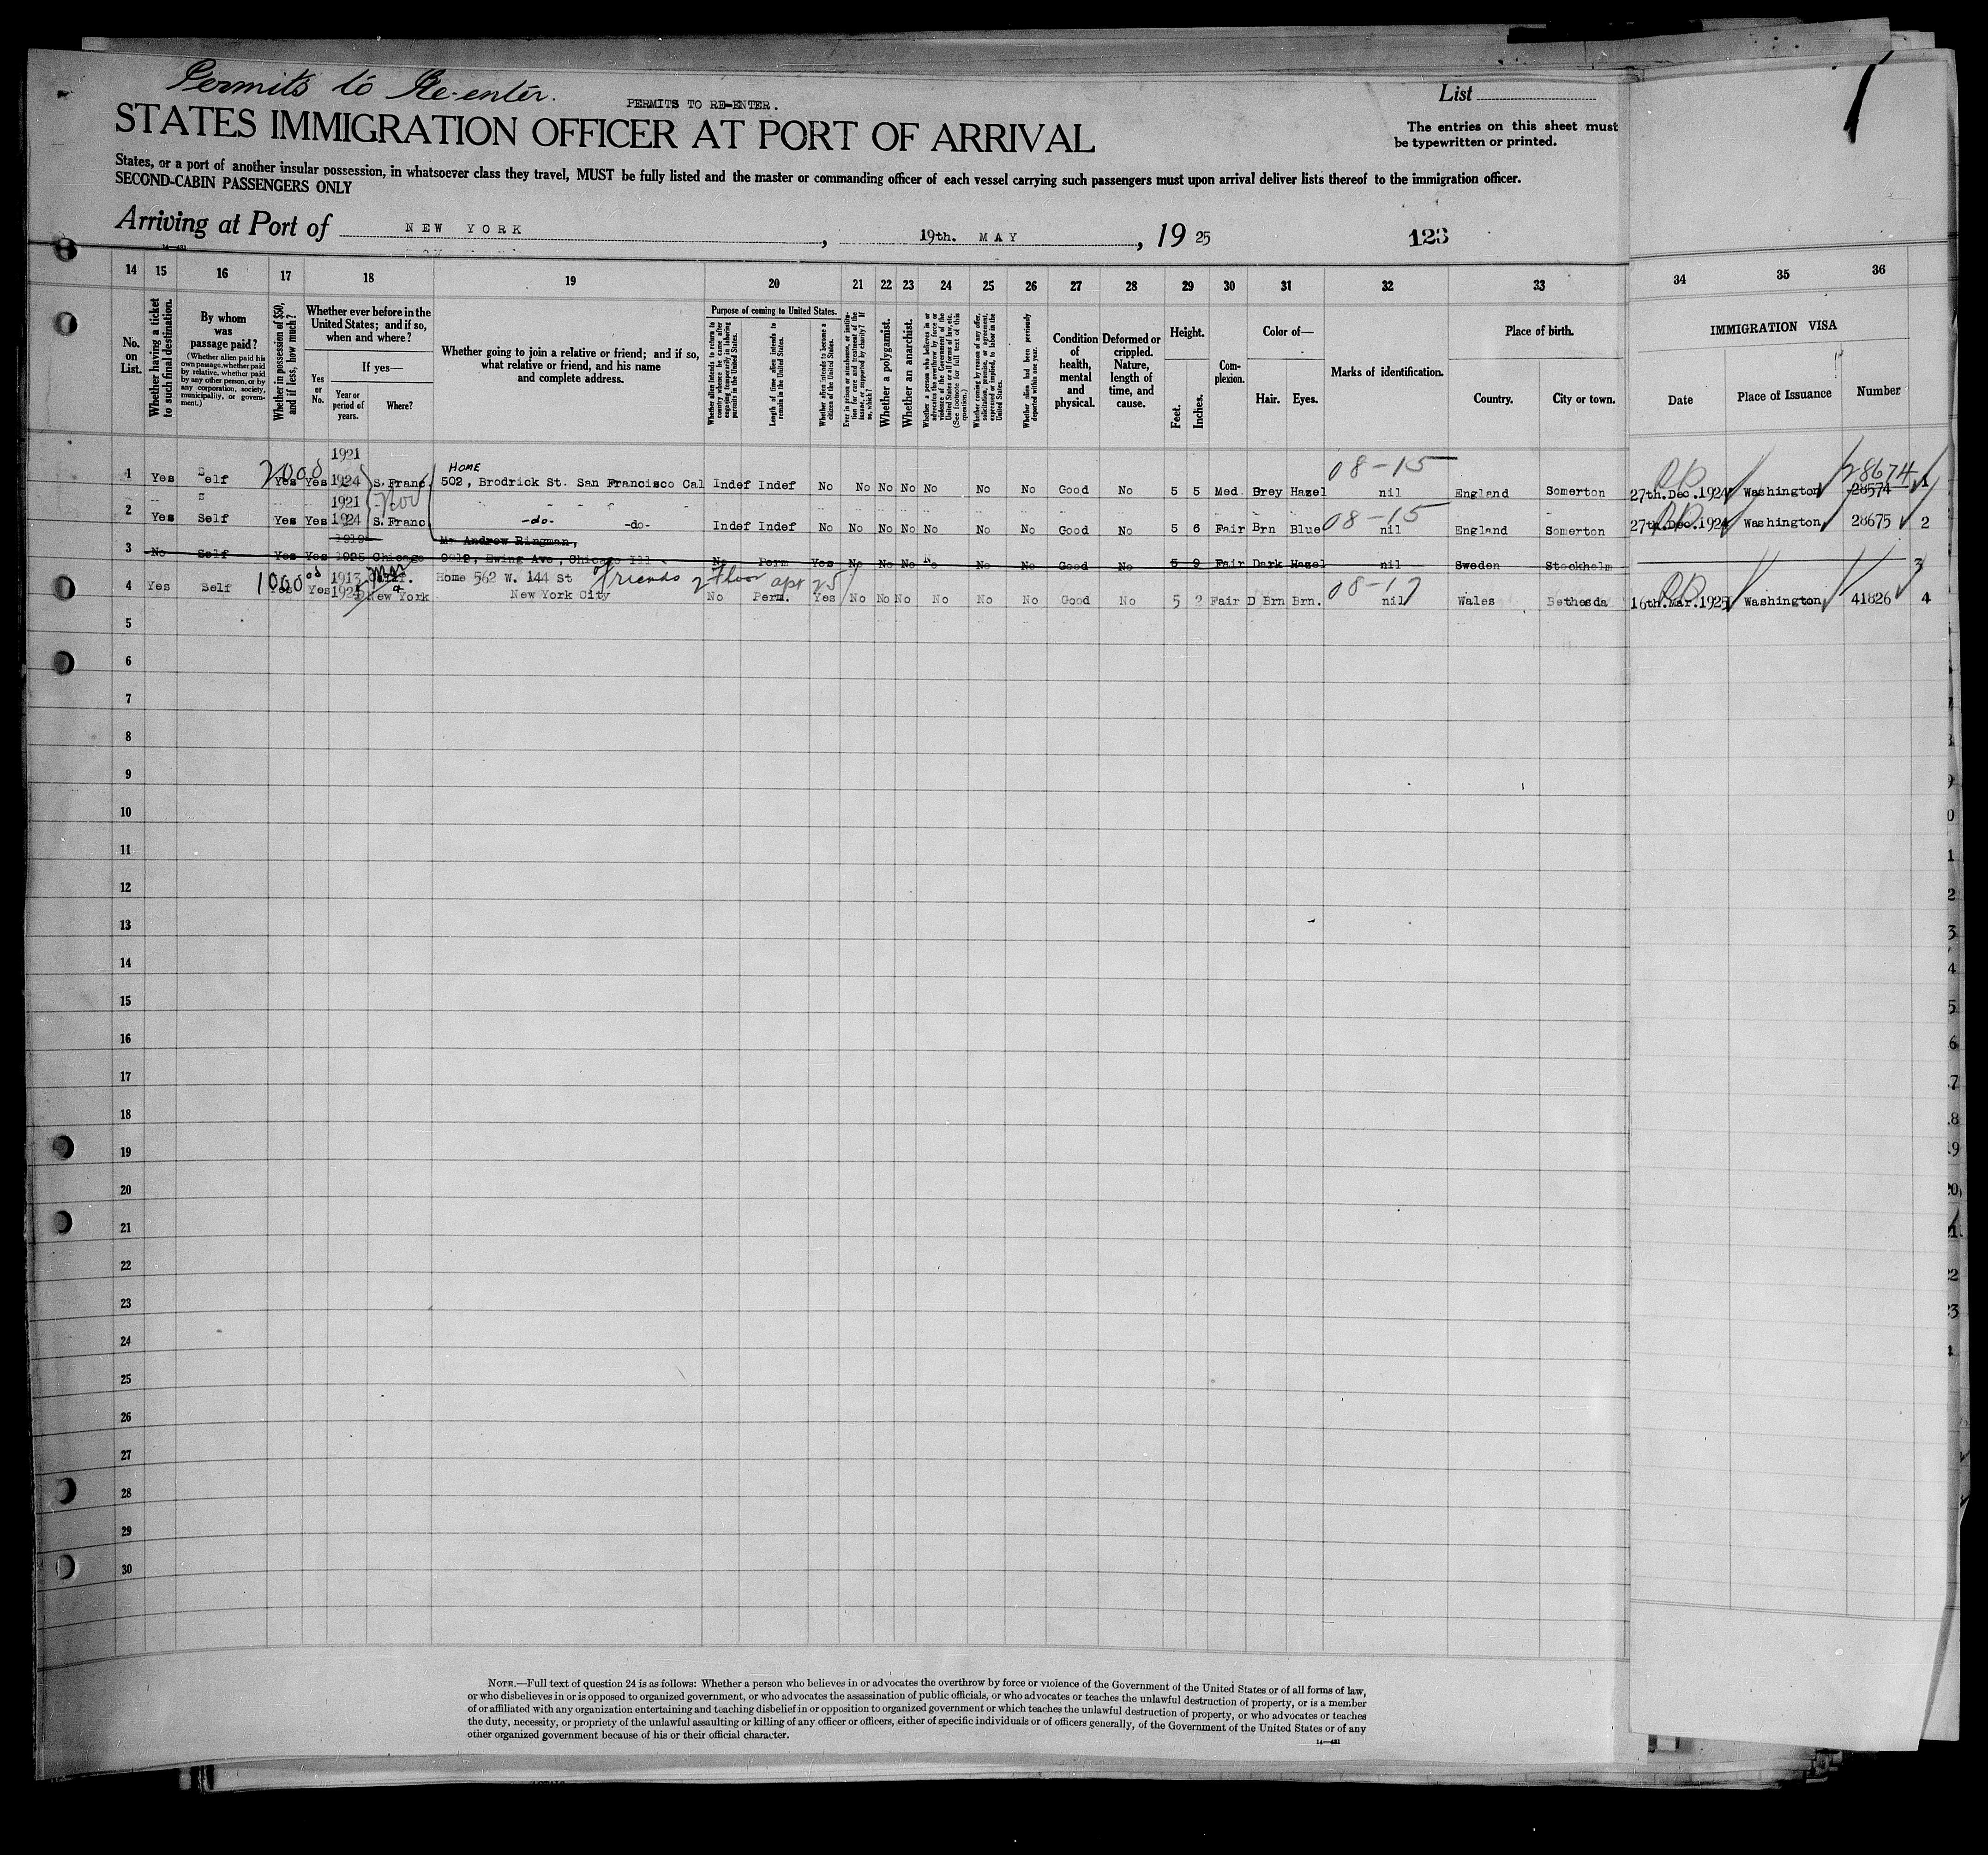 Permits to Re-enter.
PERMITS TO RE-ENTER.
List
The entries on this sheet must
be typewritten or printed.
STATES IMMIGRATION OFFICER AT PORT OF ARRIVAL
States, or a port of another insular possession, in whatsoever class they travel, MUST be fully listed and the master or commanding officer of each vessel carrying such passengers must upon arrival deliver lists thereof to the immigration officer.
SECOND-CABIN PASSENGERS ONLY
Arriving at Port of NEW YORK, 19th. MAY, 1925 123
14 15 16 17 18 19 20 21 22 23 24 25 26 27 28 29 30 31 32 33 34 35 36
No. on List.
Whether having a ticket to such final destination.
By whom was passage paid?
(Whether alien paid his own passage, whether paid by relative, whether paid by any other person, or by any corporation, society, municipality, or government.)
Whether in possession of $50, and if less, how much?
Whether ever before in the United States; and if so, when and where?
Yes or No.
If yes—
Year or period of years.
Where?
Whether going to join a relative or friend; and if so, what relative or friend, and his name and complete address.
Purpose of coming to United States.
Whether alien intends to return to country whence he came after engaging temporarily in laboring pursuits in the United States.
Length of time alien intends to remain in the United States.
Whether alien intends to become a citizen of the United States.
Ever in prison or almshouse, or institution for care and treatment of the insane, or supported by charity? If so, which?
Whether a polygamist.
Whether an anarchist.
Whether a person who believes in or advocates the overthrow by force or violence of the Government of the United States or all forms of law, etc. (See footnote for full text of this question.)
Whether coming by reason of any offer, solicitation, promise, or agreement, expressed or implied, to labor in the United States.
Whether alien had been previously deported within one year.
Condition of health, mental and physical.
Deformed or crippled. Nature, length of time, and cause.
Height.
Feet.
Inches.
Complexion.
Color of—
Hair.
Eyes.
Marks of identification.
Place of birth.
Country.
City or town.
IMMIGRATION VISA
Date
Place of Issuance
Number
1 Yes Self 2000 Yes Yes 1921 1924 S. Franc. HOME 502, Brodrick St. San Francisco Cal Indef Indef No No No No No No No Good No 5 5 Med. Grey Hazel 08-15 nil England Somerton 27th.Dec.1924 Washington 28674 28574 1
2 Yes Self Yes Yes 1921 1924 S. Franc -do- -do- Indef Indef No No No No No No No Good No 5 6 Fair Brn Blue 08-15 nil England Somerton 27th.Dec.1924 Washington 28675 2
3 No Self Yes Yes 1919 1925 Chicago Mr Andrew Ringman, 9912, Ewing Ave, Chicago Ill No Perm Yes No No No No No No Good No 5 9 Fair Dark Hazel nil Sweden Stockholm 3
4 Yes Self 1000 Yes Yes 1913 1924 New York Home 562 W. 144 St friends 2 Floor apr 25 New York City No Perm. Yes No No No No No No Good No 5 2 Fair D Brn Brn. 08-17 nil Wales Bethesda 16th.Mar.1925 Washington 41826 4
5
6
7
8
9
10
11
12
13
14
15
16
17
18
19
20
21
22
23
24
25
26
27
28
29
30
NOTE.—Full text of question 24 is as follows: Whether a person who believes in or advocates the overthrow by force or violence of the Government of the United States or of all forms of law,
or who disbelieves in or is opposed to organized government, or who advocates the assassination of public officials, or who advocates or teaches the unlawful destruction of property, or is a member
of or affiliated with any organization entertaining and teaching disbelief in or opposition to organized government or which teaches the unlawful destruction of property, or who advocates or teaches
the duty, necessity, or propriety of the unlawful assaulting or killing of any officer or officers, either of specific individuals or of officers generally, of the Government of the United States or of any
other organized government because of his or their official character.
14—421